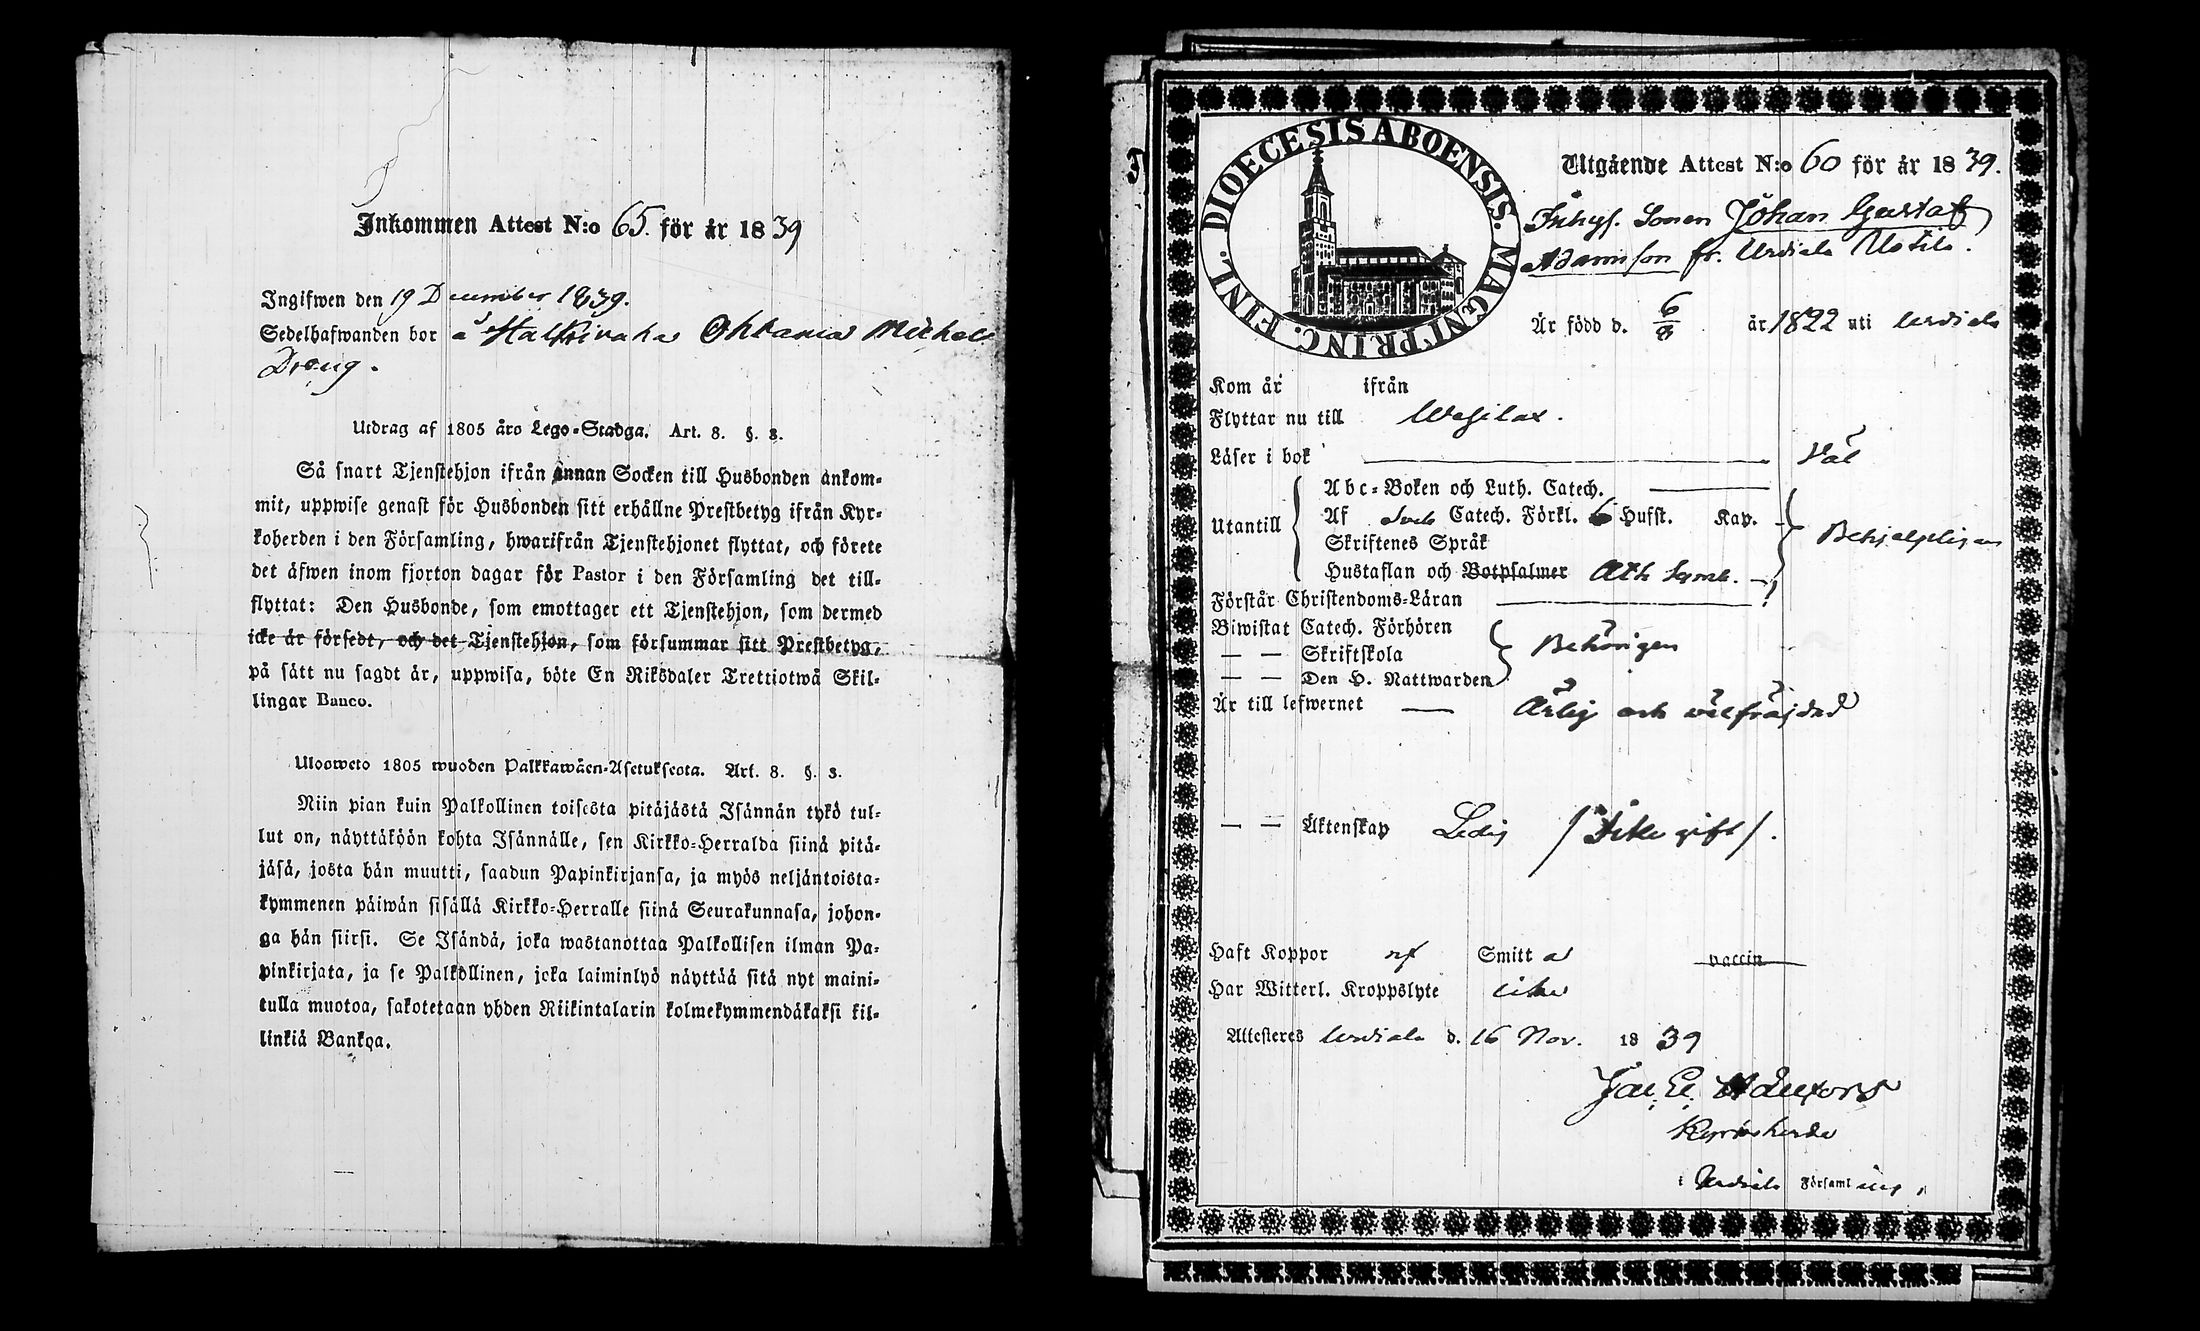 Inkommen Attest N:o 65. för år 1839
Ingifwen den 19 December 1839.
Sedelhafwanden bor å Halkivaha Ohtama Michels
Dreng.
Utdrag af 1805 års Lego-Stadga. Art. 8. §. 3.
Så snart Tjenstehjon ifrån annan Socken till Husbonden ankom-
mit, uppwise genast för Husbonden sitt erhållne Prestbetyg ifrån Kyr-
koherden i den Församling, hwarifrån Tjenstehjonet flyttat, och förete
det äfwen inom fjorton dagar för Pastor i den Församling det till-
flyttat: Den Husbonde, som emottager ett Tjenstehjon, som dermed
icke är försedt, och det Tjenstehjon, som försummar sitt Prestbetyg,
på sätt nu sagdt är, uppwisa, böte En Riksdaler Trettiotwå Skil-
lingar Banco.
Ulosweto 1805 wuoden Palkkawäen-Asetuksesta. Art. 8. §. 3.
Niin pian kuin Palkollinen toisesta pitäjästä Isännän tykö tul-
lut on, näyttäköön kohta Isännälle, sen Kirkko-Herralda siinä pitä-
jäsä, josta hän muutti, saadun Papinkirjansa, ja myös neljäntoista-
kymmenen päiwän sisällä Kirkko-Herralle siinä Seurakunnasa, johon-
ga hän siirsi. Se Isändä, joka wastanottaa Palkollisen ilman Pa-
pinkirjata, ja se Palkollinen, joka laiminlyö näyttää sitä nyt maini-
tulla muotoa, sakotetaan yhden Riikintalarin kolmekymmendäkaksi kil-
linkiä Bankoa.
DIOECESIS ABOENSIS. MAGNI PRINC. FINL.
Utgående Attest N:o 60 för år 1839.
Inhys. Sonen Johan Gustaf
Adamsson fr. Urdiala Uotila.
Är född d. 6/8 år 1822 uti Urdiala
Kom år ifrån
Flyttar nu till Wesilax.
Läser i bok Väl
Abc-Boken och Luth. Catech.
Utantill Af Sveb Catech. Förkl. 6 Hufst. Kap. Behjelpligen
Skriftenes Språk
Hustaflan och Botpsalmer Ath Symb.
Förstår Christendoms-Läran
Biwistat Catech. Förhören
— — Skriftskola Behörigen
— — Den H. Nattwarden
Är till lefwernet Ärlig och välfräjdad
— — Äktenskap Ledig /: Icke gift /.
Haft Koppor Smitt vaccin
Har Witterl. Kroppslyte icke
Attesteres Urdiala d. 16 Nov. 1839
Kyrkoherde
i Urdiala Församling.